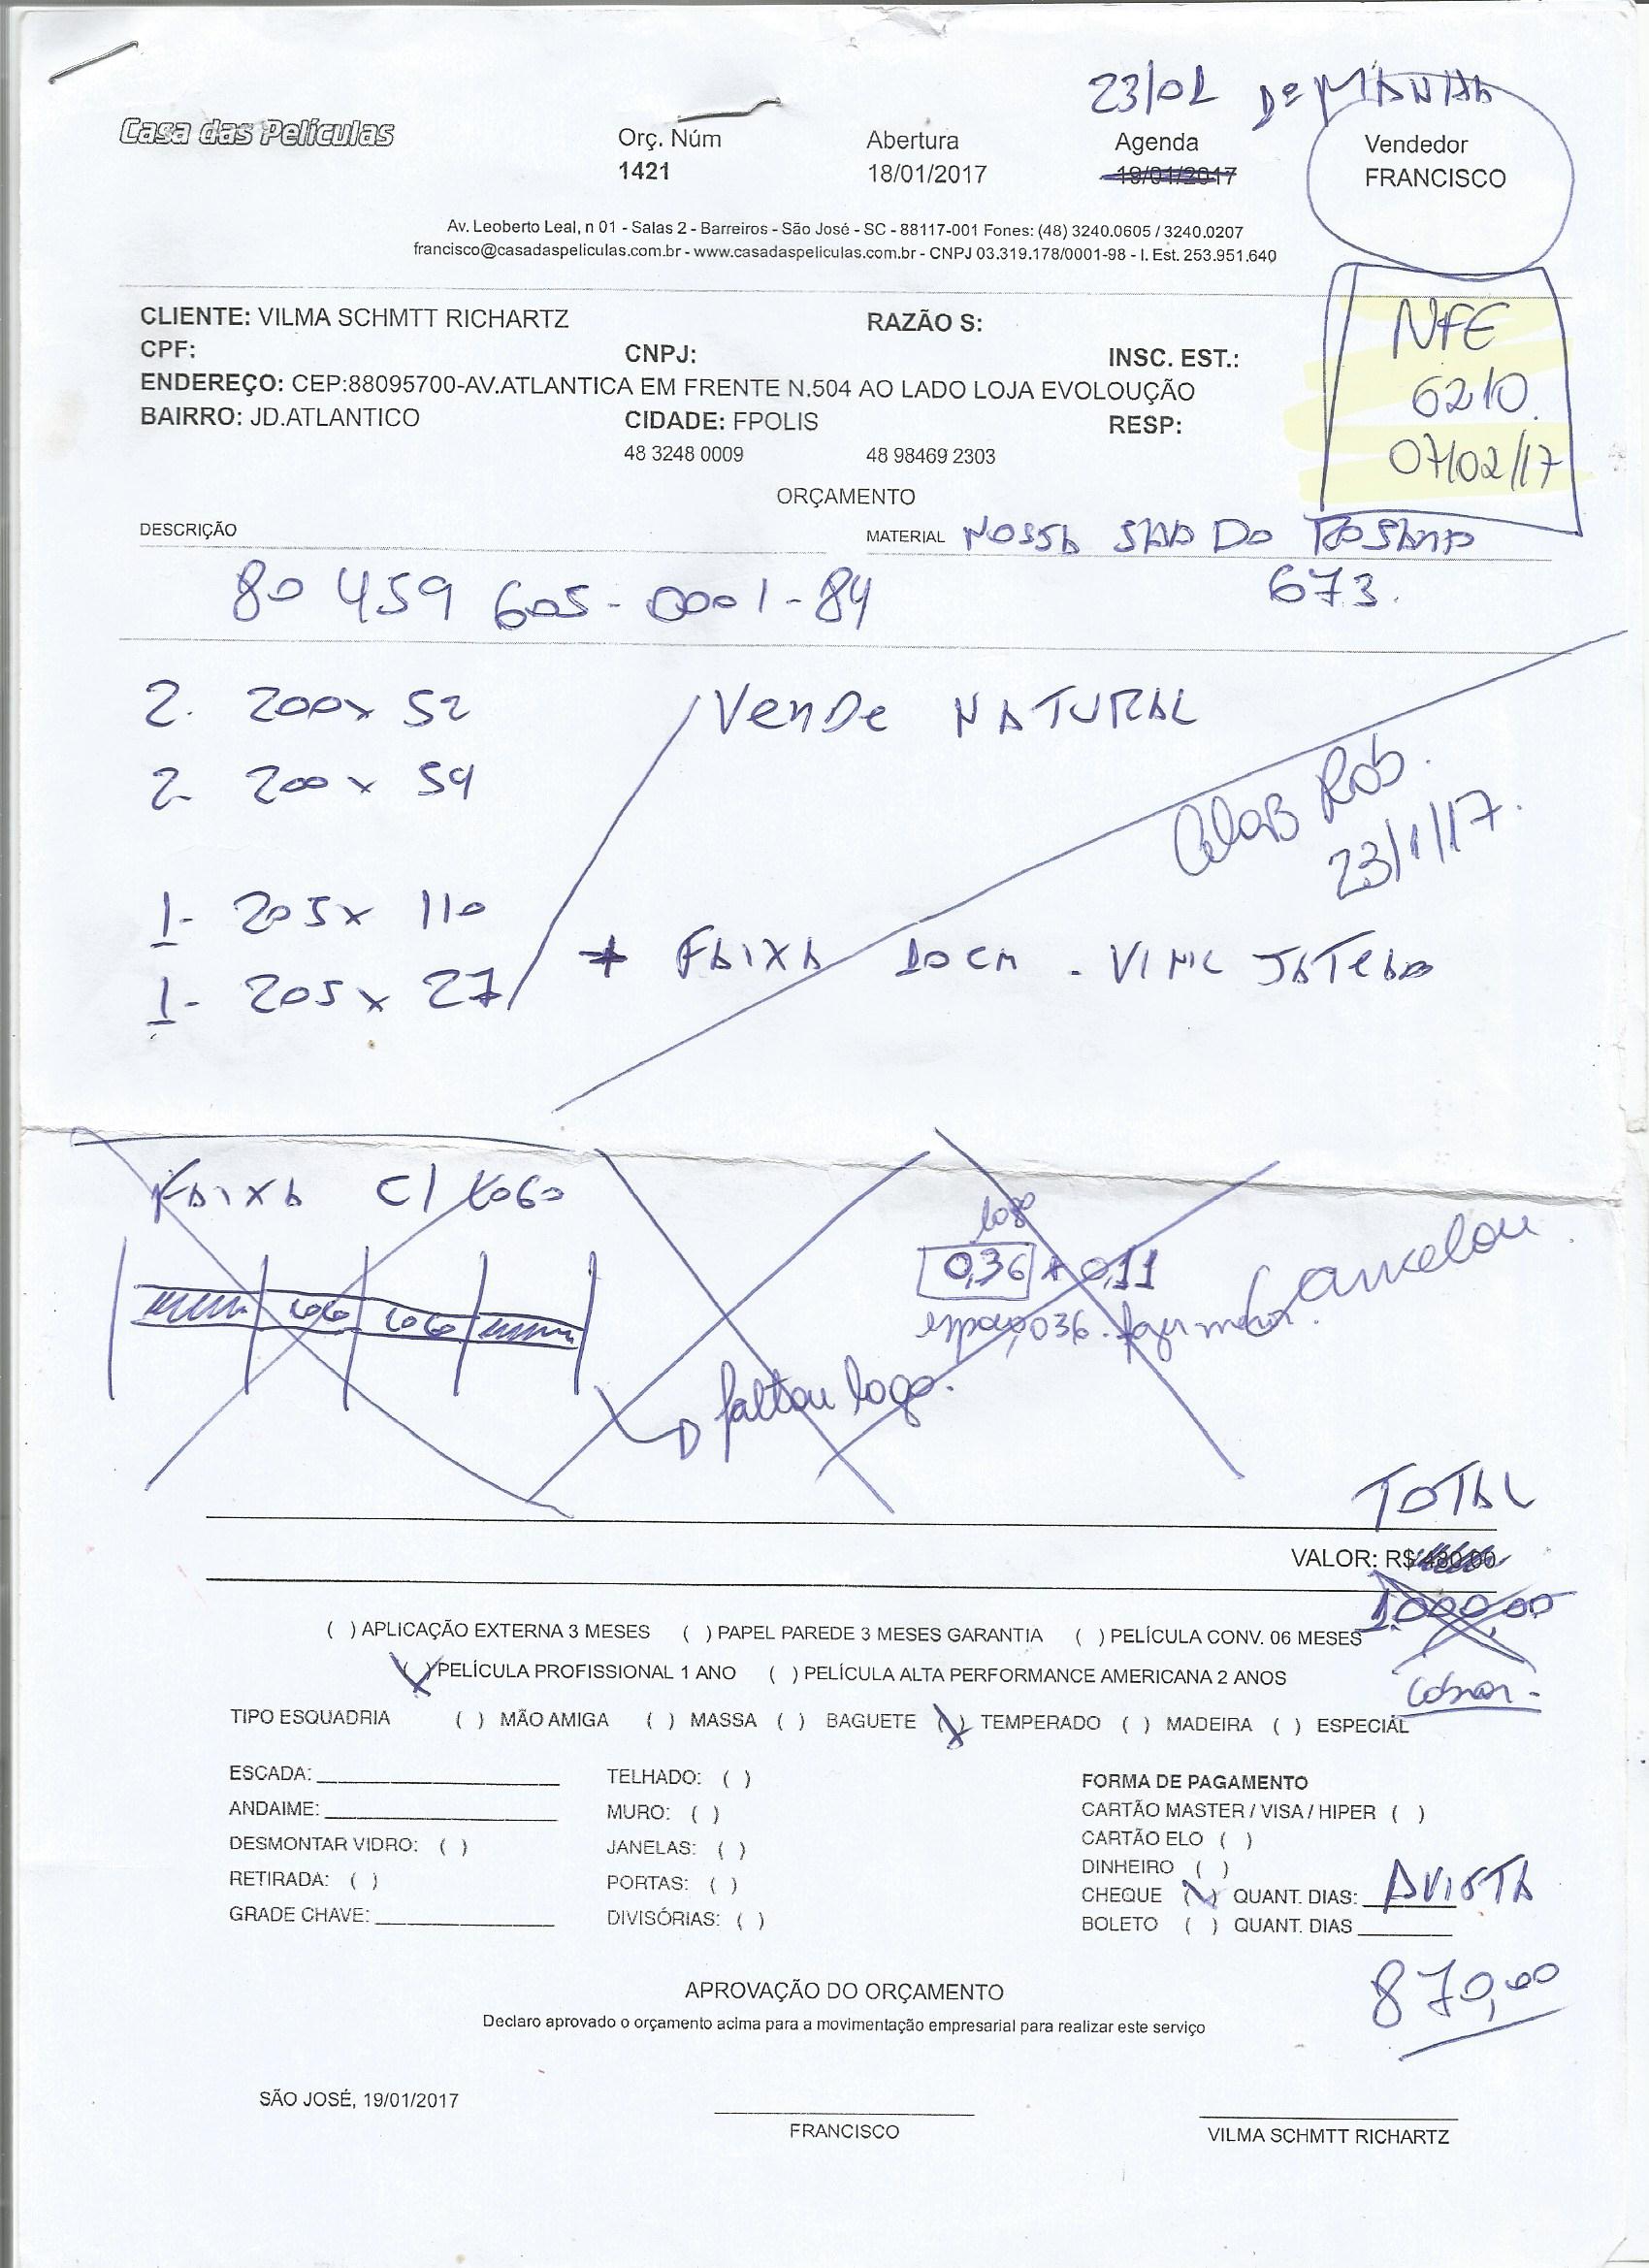 23/01 Dª MANHA
Casa das Películas
Orç. Núm Abertura Agenda Vendedor
1421 18/01/2017 19/01/2017 FRANCISCO
Av. Leoberto Leal, n 01 - Salas 2 - Barreiros - São José - SC - 88117-001 Fones: (48) 3240.0605 / 3240.0207
francisco@casadaspeliculas.com.br - www.casadaspeliculas.com.br - CNPJ 03.319.178/0001-98 - I. Est. 253.951.640
CLIENTE: VILMA SCHMTT RICHARTZ RAZÃO S:
CPF: CNPJ: INSC. EST.:
ENDEREÇO: CEP:88095700-AV.ATLANTICA EM FRENTE N.504 AO LADO LOJA EVOLOUÇÃO
BAIRRO: JD.ATLANTICO CIDADE: FPOLIS RESP:
48 3248 0009 48 98469 2303
NFE
6210.
07/02/17
ORÇAMENTO
DESCRIÇÃO MATERIAL NOSSA DO ROSARIO
80 459 605-0001-84 673.
2. 200x 52 VenDe NATURAL
2- 200x 59
Rob.
23/1/17.
1- 205x 110
* FAIXA 10cm - JATEADO
1- 205x 27
FAIXA C/ LOGO
logo
0,36 x 0,11 Cancelou.
espaço,036. fazer menor.
LOGO LOGO
faltou logo.
TOTAL
VALOR: R$ 480,00
1.000,00
( ) APLICAÇÃO EXTERNA 3 MESES ( ) PAPEL PAREDE 3 MESES GARANTIA ( ) PELÍCULA CONV. 06 MESES
(X) PELÍCULA PROFISSIONAL 1 ANO ( ) PELÍCULA ALTA PERFORMANCE AMERICANA 2 ANOS
cobrar-
TIPO ESQUADRIA ( ) MÃO AMIGA ( ) MASSA ( ) BAGUETE (X) TEMPERADO ( ) MADEIRA ( ) ESPECIAL
ESCADA: TELHADO: ( ) FORMA DE PAGAMENTO
ANDAIME: MURO: ( ) CARTÃO MASTER / VISA / HIPER ( )
DESMONTAR VIDRO: ( ) JANELAS: ( ) CARTÃO ELO ( )
DINHEIRO ( )
RETIRADA: ( ) PORTAS: ( ) CHEQUE (X) QUANT. DIAS: AVISTA
GRADE CHAVE: DIVISÓRIAS: ( ) BOLETO ( ) QUANT. DIAS
870,00
APROVAÇÃO DO ORÇAMENTO
Declaro aprovado o orçamento acima para a movimentação empresarial para realizar este serviço
SÃO JOSÉ, 19/01/2017
FRANCISCO VILMA SCHMTT RICHARTZ